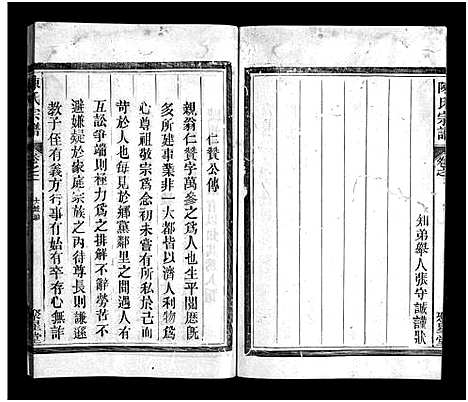 陳氏宗譜
卷之二
知弟舉人張守誠謹狀
聚星堂
仁贊公傳
親翁仁贊字萬參之爲人也生平閱歷旣
多所建事業非一大都皆以濟人利物爲
心尊祖敬宗爲念初未嘗有所私於己有
苛於人也每見於鄉黨鄰里之間遇人有
互訟爭端則必力爲之排解不辭勞苦不
避嫌疑於家庭宗族之內待尊長則謙遜
教子侄有義方行事有始有卒存心無詐
陳氏宗譜
聚星堂